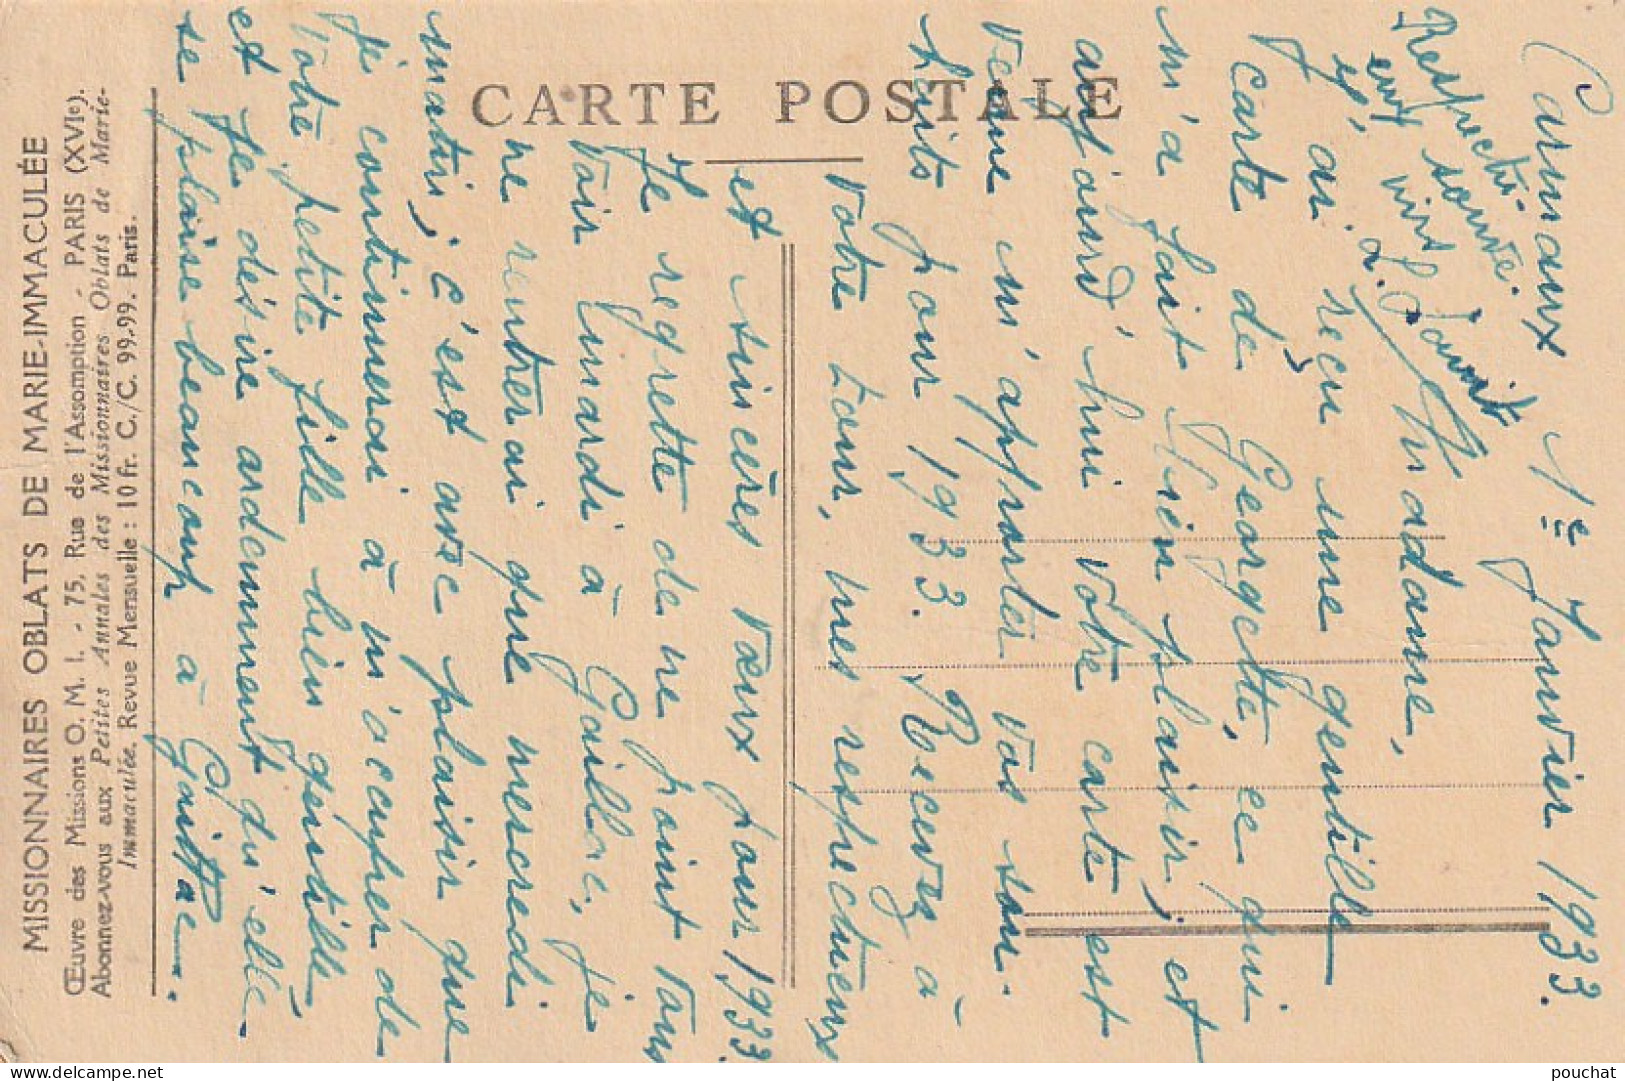 MISSIONNAIRES OBLATS DE MARIE-IMMACULÉE
Œuvre des Missions O. M. I. - 75, Rue de l'Assomption - PARIS (XVIe).
Abonnez-vous aux Petites Annales des Missionnaires Oblats de Marie-
Immaculée. Revue Mensuelle : 10 fr. C./C. 99-99. Paris.
CARTE POSTALE
Carmaux 1e Janvier 1933.
Madame,
J'ai reçu une gentille
carte de Georgette, ce qui
m'a fait bien plaisir, et
aujourd'hui votre carte est
venue m'apporter vos sou-
haits pour 1933. Recevez à
votre tour, mes respectueux
et sincères vœux pour 1933.
Je regrette de ne point vous
voir mardi à Gaillac, je
ne rentrerai que mercredi
matin; c'est avec plaisir que
je continuerai à m'occuper de
votre petite fille bien gentille,
et je désire ardemment qu'elle
se plaise beaucoup à Gaillac.
Respectueux
souvenir